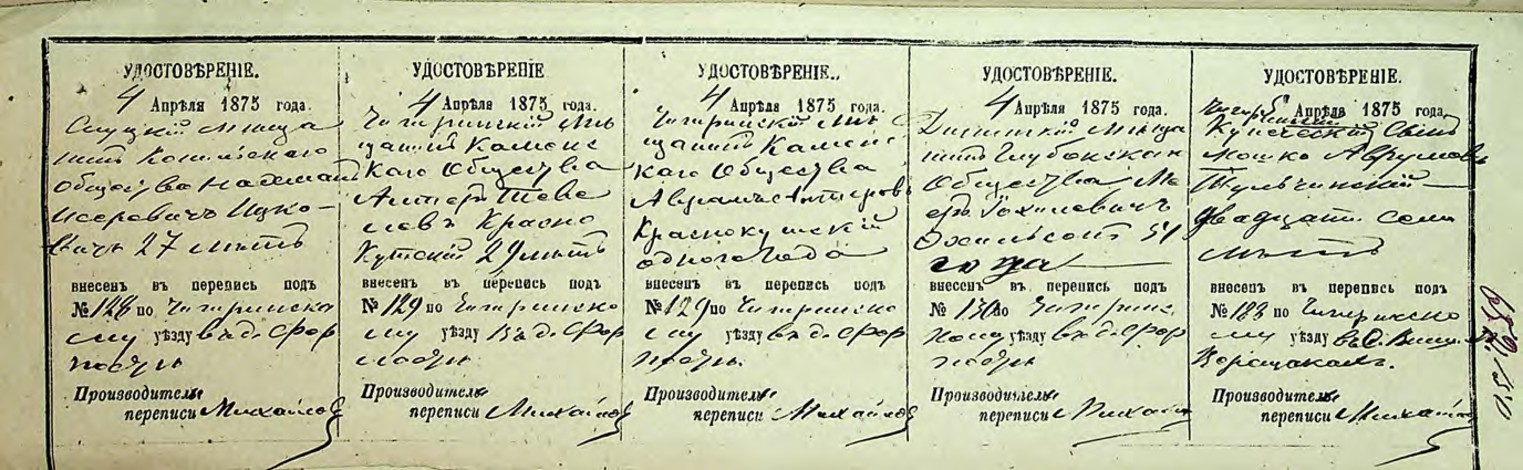 УДОСТОВѢРЕНІЕ.
4 Апрѣля 1875 года.
Слуцкій мѣща
нинъ Копыльскаго
Общества
Исеровичъ Ицко-
вичъ 27 лѣтъ
внесенъ въ перепись подъ
№ 128 по Чигиринско
му уѣзду въ д. Фор
постѣ
Производитель
переписи Михайлов
УДОСТОВѢРЕНІЕ
4 Апрѣля 1875 года.
Чигиринскій мѣ
щанинъ Каменс
каго Общества
Теве
левъ Красно
Кутскій 29 лѣтъ
внесенъ въ перепись подъ
№ 129 по Чигиринско
му уѣзду въ д. Фор
постѣ
Производитель
переписи Михайлов
УДОСТОВѢРЕНІЕ.
4 Апрѣля 1875 года.
Чигиринскій мѣ
щанинъ Каменс
каго Общества
Аврамъ
Краснокутскій
одного года
внесенъ въ перепись подъ
№ 129 по Чигиринско
му уѣзду въ д. Фор
постѣ.
Производитель
переписи Михайлов
УДОСТОВѢРЕНІЕ.
4 Апрѣля 1875 года.
Дисненскій мѣща
нинъ Глубокскаго
Общества Ме
еръ
54
года
внесенъ въ перепись подъ
№ 130 по Чигиринс
кому уѣзду въ д. Фор
постѣ
Производитель
переписи Михайл
УДОСТОВѢРЕНІЕ.
Чигиринскій 5 Апрѣля 1875 года
Купеческій Сынъ
Мошко Аврумовъ
Тульчинскій
двадцати семи
лѣтъ
внесенъ въ перепись подъ
№ 183 по Чигиринско
му уѣзду въ с.
Верещакахъ.
Производитель
переписи Михайл